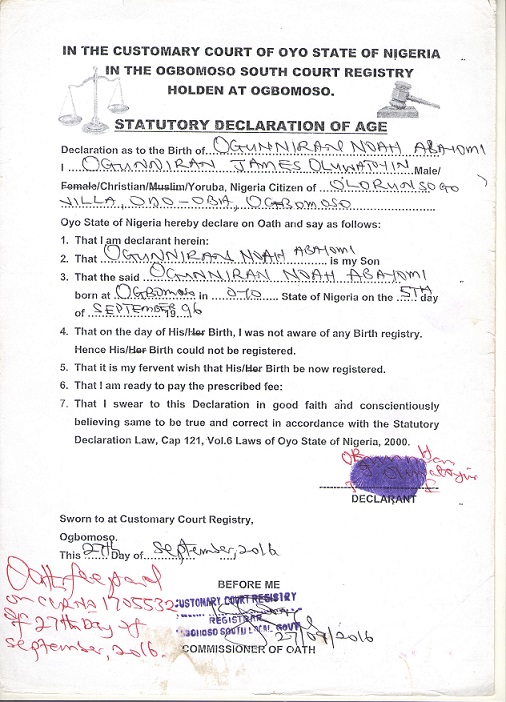 IN THE CUSTOMARY COURT OF OYO STATE OF NIGERIA
IN THE OGBOMOSO SOUTH COURT REGISTRY
HOLDEN AT OGBOMOSO.
STATUTORY DECLARATION OF AGE
Declaration as to the Birth of OGUNNIRAN NOAH ABAYOMI
I OGUNNIRAN JAMES OLUWATOYIN Male/
Female/Christian/Muslim/Yoruba, Nigeria Citizen of OLORUNSOGO
VILLA, ODO-OBA, OGBOMOSO
Oyo State of Nigeria hereby declare on Oath and say as follows:
1. That I am declarant herein:
2. That OGUNNIRAN NOAH ABAYOMI is my Son
3. That the said OGUNNIRAN NOAH ABAYOMI
born at OGBOMOSO in OYO State of Nigeria on the 5TH day
of SEPTEMBER 1996
4. That on the day of His/Her Birth, I was not aware of any Birth registry.
Hence His/Her Birth could not be registered.
5. That it is my fervent wish that His/Her Birth be now registered.
6. That I am ready to pay the prescribed fee:
7. That I swear to this Declaration in good faith and conscientiously
believing same to be true and correct in accordance with the Statutory
Declaration Law, Cap 121, Vol.6 Laws of Oyo State of Nigeria, 2000.
DECLARANT
Sworn to at Customary Court Registry,
Ogbomoso.
This 27th Day of September, 2016
Oath fee paid
on CVRNO 1705532
of 27th Day of
September, 2016.
BEFORE ME
CUSTOMARY COURT REGISTRY
REGISTRAR
OGBOMOSO SOUTH LOCAL GOVT
27/09/2016
COMMISSIONER OF OATH